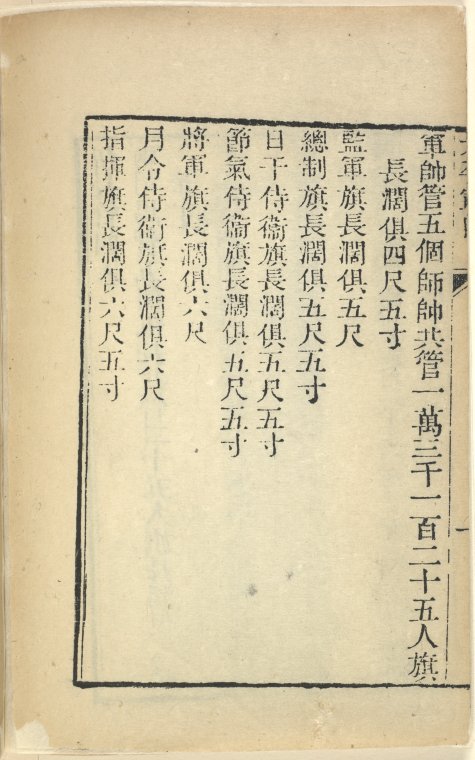 軍帥管五個師帥共管一萬三千一百二十五人旗
長濶俱四尺五寸
監軍旗長濶俱五尺
總制旗長濶俱五尺五寸
日干侍衞旗長濶俱五尺五寸
節氣侍衞旗長濶俱五尺五寸
將軍旗長濶俱六尺
月令侍衞旗長濶俱六尺
指揮旗長濶俱六尺五寸